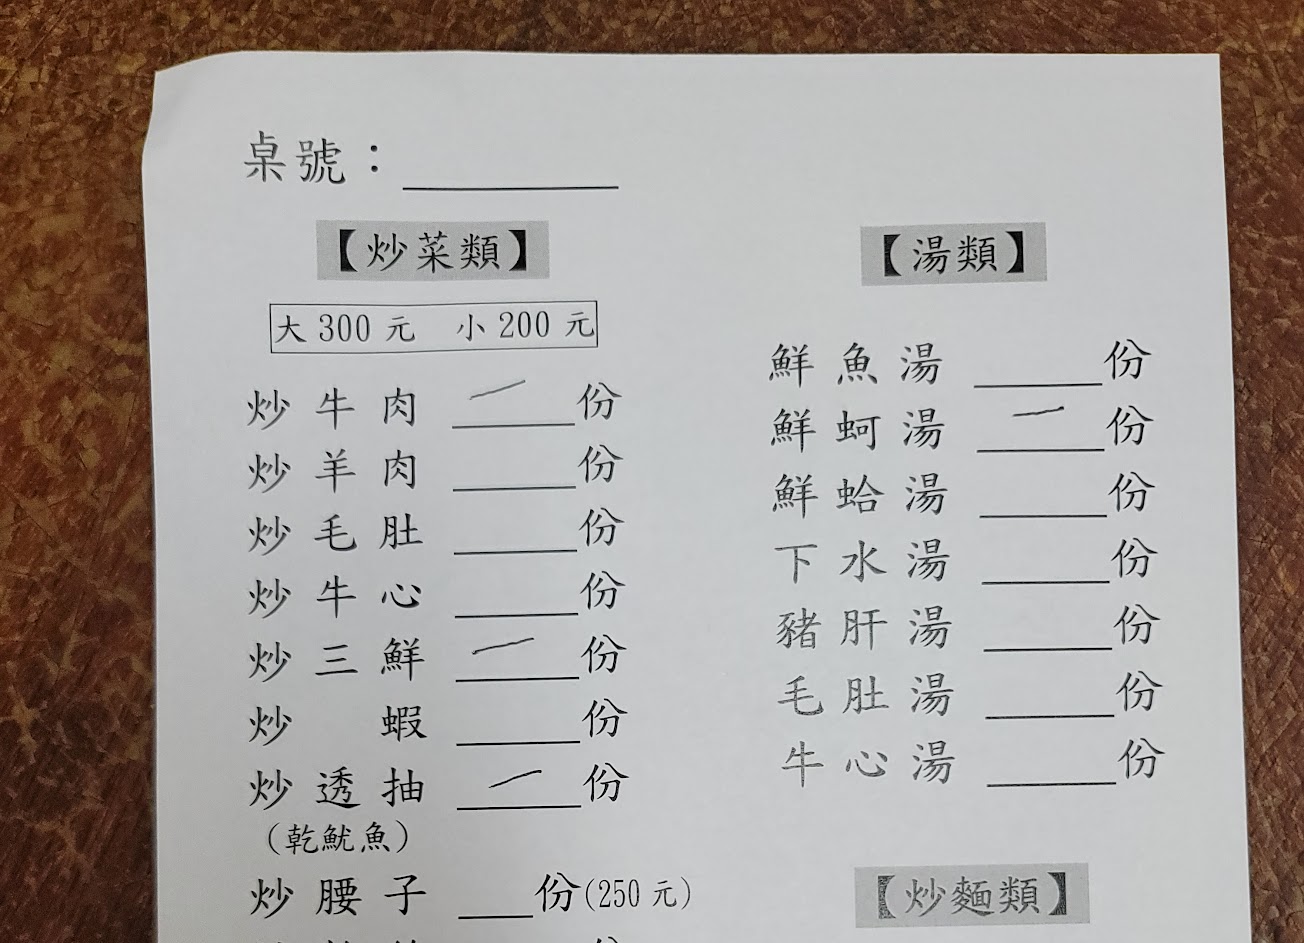 桌號：
【炒菜類】
大 300 元 小 200 元
炒牛肉 一 份
炒羊肉 份
炒毛肚 份
炒牛心 份
炒三鮮 一 份
炒 蝦 份
炒透抽 一 份
(乾魷魚)
炒腰子 份(250 元)
【湯類】
鮮魚湯 份
鮮蚵湯 一 份
鮮蛤湯 份
下水湯 份
豬肝湯 份
毛肚湯 份
牛心湯 份
【炒麵類】